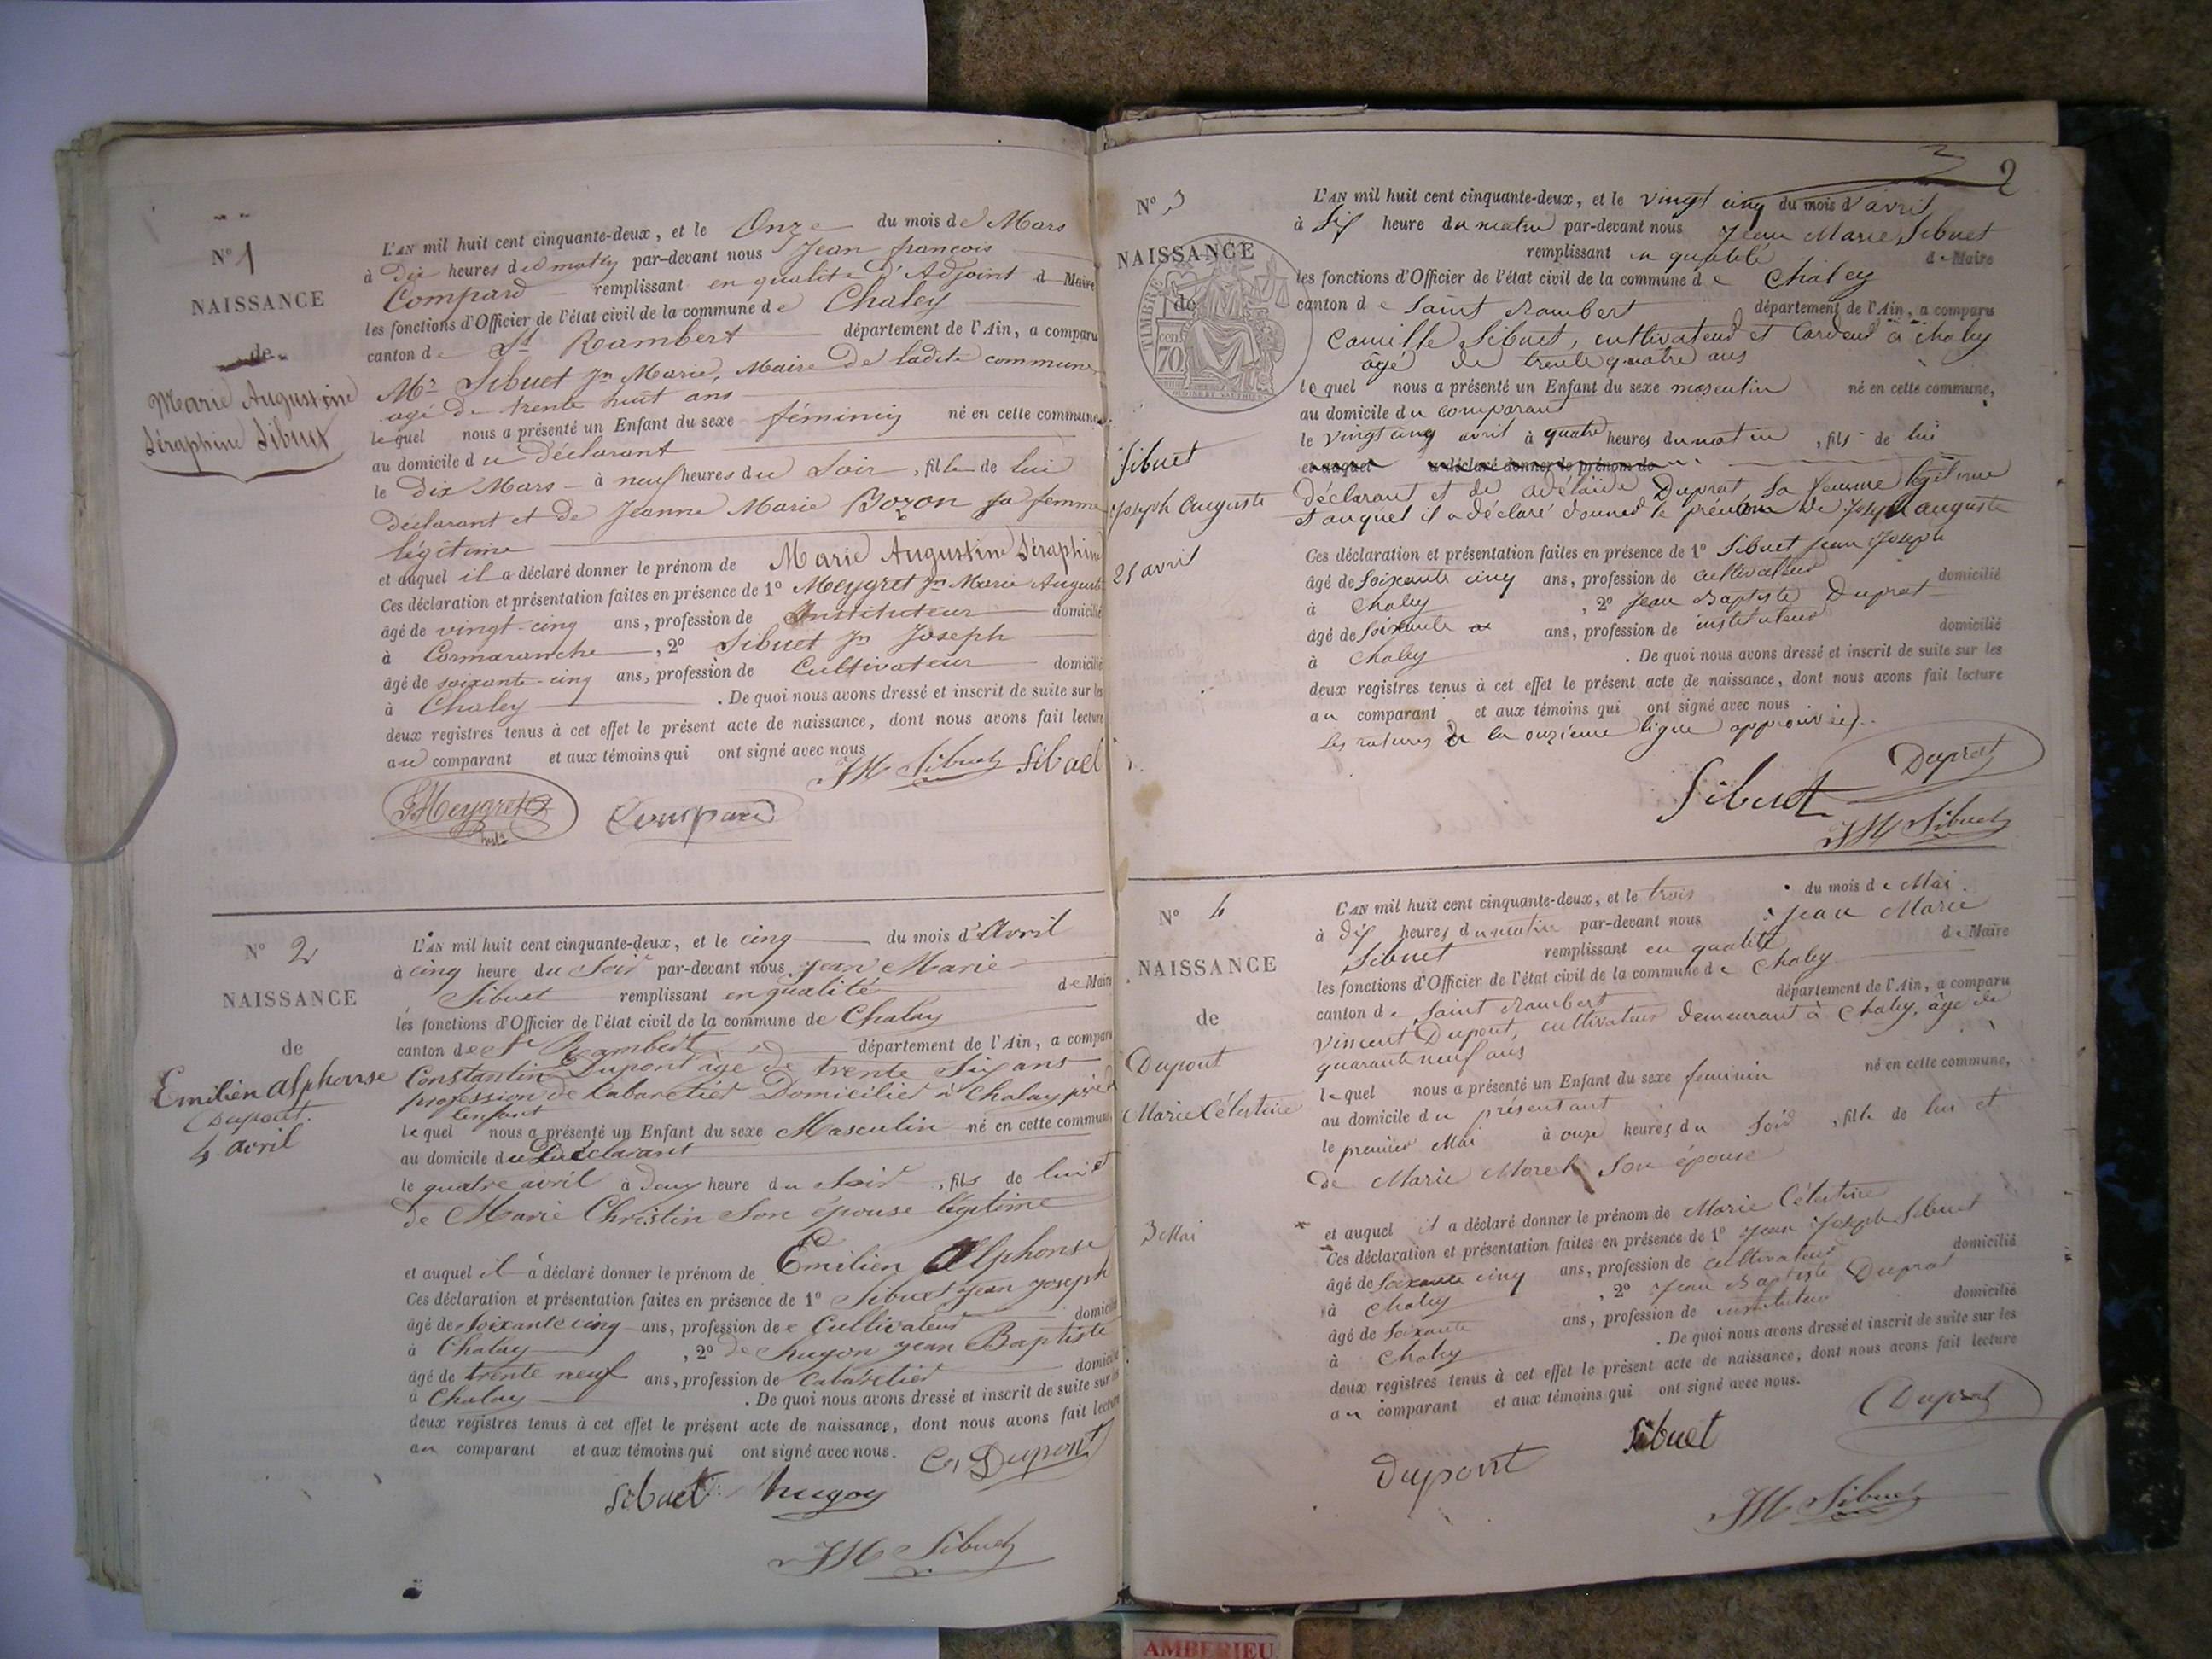 N° 1
NAISSANCE
de
Marie Augustine
Séraphine Sibuet
L'AN mil huit cent cinquante-deux, et le Onze du mois de Mars
à dix heures du matin par-devant nous Jean françois
Compard remplissant en qualité d'Adjoint d Maire
les fonctions d'Officier de l'état civil de la commune de Chaley
canton de St Rambert département de l'Ain, a comparu
Mr Sibuet Jn Marie, Maire de ladite commune
agé de trente huit ans
lequel nous a présenté un Enfant du sexe féminin né en cette commune,
au domicile du déclarant
le dix Mars à neuf heures du Soir, fille de lui
déclarant et de Jeanne Marie Bozon sa femme
légitime
et auquel il a déclaré donner le prénom de Marie Augustine Séraphine
Ces déclaration et présentation faites en présence de 1° Meygret Jn Marie Auguste
âgé de vingt-cinq ans, profession de Instituteur domicilié
à Cormaranche, 2° Sibuet Jn Joseph
âgé de soixante-cinq ans, profession de Cultivateur domicilié
à Chaley. De quoi nous avons dressé et inscrit de suite sur les
deux registres tenus à cet effet le présent acte de naissance, dont nous avons fait lecture
au comparant et aux témoins qui ont signé avec nous
JM Sibuet Sibuet
Meygret Compard
N° 2
NAISSANCE
de
Emilien alphonse
Dupont.
4 avril
L'AN mil huit cent cinquante-deux, et le cinq du mois d'Avril
à cinq heure du Soir par-devant nous Jean Marie
Sibuet remplissant en qualité de Maire
les fonctions d'Officier de l'état civil de la commune de Chalay
canton de St Rambert département de l'Ain, a comparu
Constantin Dupont âge de trente Six ans
profession de Cabaretier Domicilier à Chalay père d
lenfant
lequel nous a présenté un Enfant du sexe Masculin né en cette commune,
au domicile du Déclarant
le quatre avril à deux heure du Soir, fils de lui et
de Marie Christin Son épouse légitime
et auquel il a déclaré donner le prénom de Emilien Alphonse
Ces déclaration et présentation faites en présence de 1° Sibuet Jean Joseph
âgé de Soixante cinq ans, profession de Cultivateur domicilié
à Chalay, 2° de hugon Jean Baptiste
âgé de trente neuf ans, profession de Cabaretier domicilié
à Chalay. De quoi nous avons dressé et inscrit de suite sur les
deux registres tenus à cet effet le présent acte de naissance, dont nous avons fait lecture
au comparant et aux témoins qui ont signé avec nous.
Cn Dupont
Sibuet hugon
JM Sibuet
2
N° 3
NAISSANCE
de
TIMBRE
70
Sibuet
Joseph Auguste
25 avril
L'AN mil huit cent cinquante-deux, et le vingt cinq du mois d'avril
à Six heure du matin par-devant nous Jean Marie Sibuet
remplissant en qualité de Maire
les fonctions d'Officier de l'état civil de la commune de Chaley
canton de Saint Rambert département de l'Ain, a comparu
Camille Sibuet, cultivateur et Cardeur à Chaley
âgé de trente quatre ans
lequel nous a présenté un Enfant du sexe masculin né en cette commune,
au domicile du comparant
le vingt cinq avril à quatre heures du matin, fils de lui
et auquel a déclaré donner le prénom de
déclarant et de adélaïde Duprat sa femme légitime
et auquel il a déclaré donner le prénom de Joseph auguste
Ces déclaration et présentation faites en présence de 1° Sibuet Jean Joseph
âgé de Soixante cinq ans, profession de cultivateur domicilié
à Chaley, 2° Jean Baptiste Duprat
âgé de Soixante ans, profession de instituteur domicilié
à Chaley. De quoi nous avons dressé et inscrit de suite sur les
deux registres tenus à cet effet le présent acte de naissance, dont nous avons fait lecture
au comparant et aux témoins qui ont signé avec nous
les ratures de la onzième ligne approuvées.
Duprat
Sibuet
JM Sibuet
N° 4
NAISSANCE
de
Dupont
Marie Célestine
3 Mai
L'AN mil huit cent cinquante-deux, et le trois du mois de Mai.
à dix heures du matin par-devant nous Jean Marie
Sibuet remplissant en qualité de Maire
les fonctions d'Officier de l'état civil de la commune de Chaley
canton de Saint Rambert département de l'Ain, a comparu
Vincent Dupont, cultivateur demeurant à Chaley, âgé de
quarante neuf ans
lequel nous a présenté un Enfant du sexe feminin né en cette commune,
au domicile du présentant
le premier Mai à onze heures du Soir, fille de lui et
de Marie Morel Son épouse
et auquel il a déclaré donner le prénom de Marie Célestine
Ces déclaration et présentation faites en présence de 1° Jean Joseph Sibuet
âgé de Soixante cinq ans, profession de cultivateur domicilié
à Chaley, 2° Jean Baptiste Duprat
âgé de Soixante ans, profession de instituteur domicilié
à Chaley. De quoi nous avons dressé et inscrit de suite sur les
deux registres tenus à cet effet le présent acte de naissance, dont nous avons fait lecture
au comparant et aux témoins qui ont signé avec nous.
Duprat
Dupont Sibuet
JM Sibuet
AMBERIEU